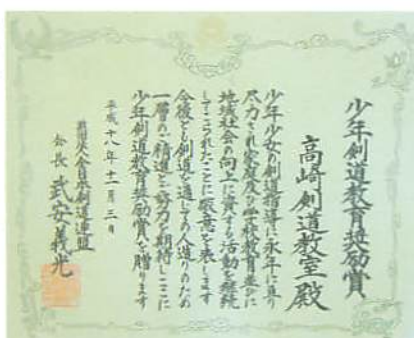 少年剣道教育奨励賞
高崎剣道教室殿
少年少女の剣道指導に永年に亘り
尽力され家庭及び学校教育並びに
地域社会の向上に資する活動を継続
してこられたことに敬意を表します
今後とも剣道を通しての人造りのため
一層のご精進とご努力を期待しここに
少年剣道教育奨励賞を贈ります
平成十八年十一月三日
財団法人全日本剣道連盟
会長 武安義光